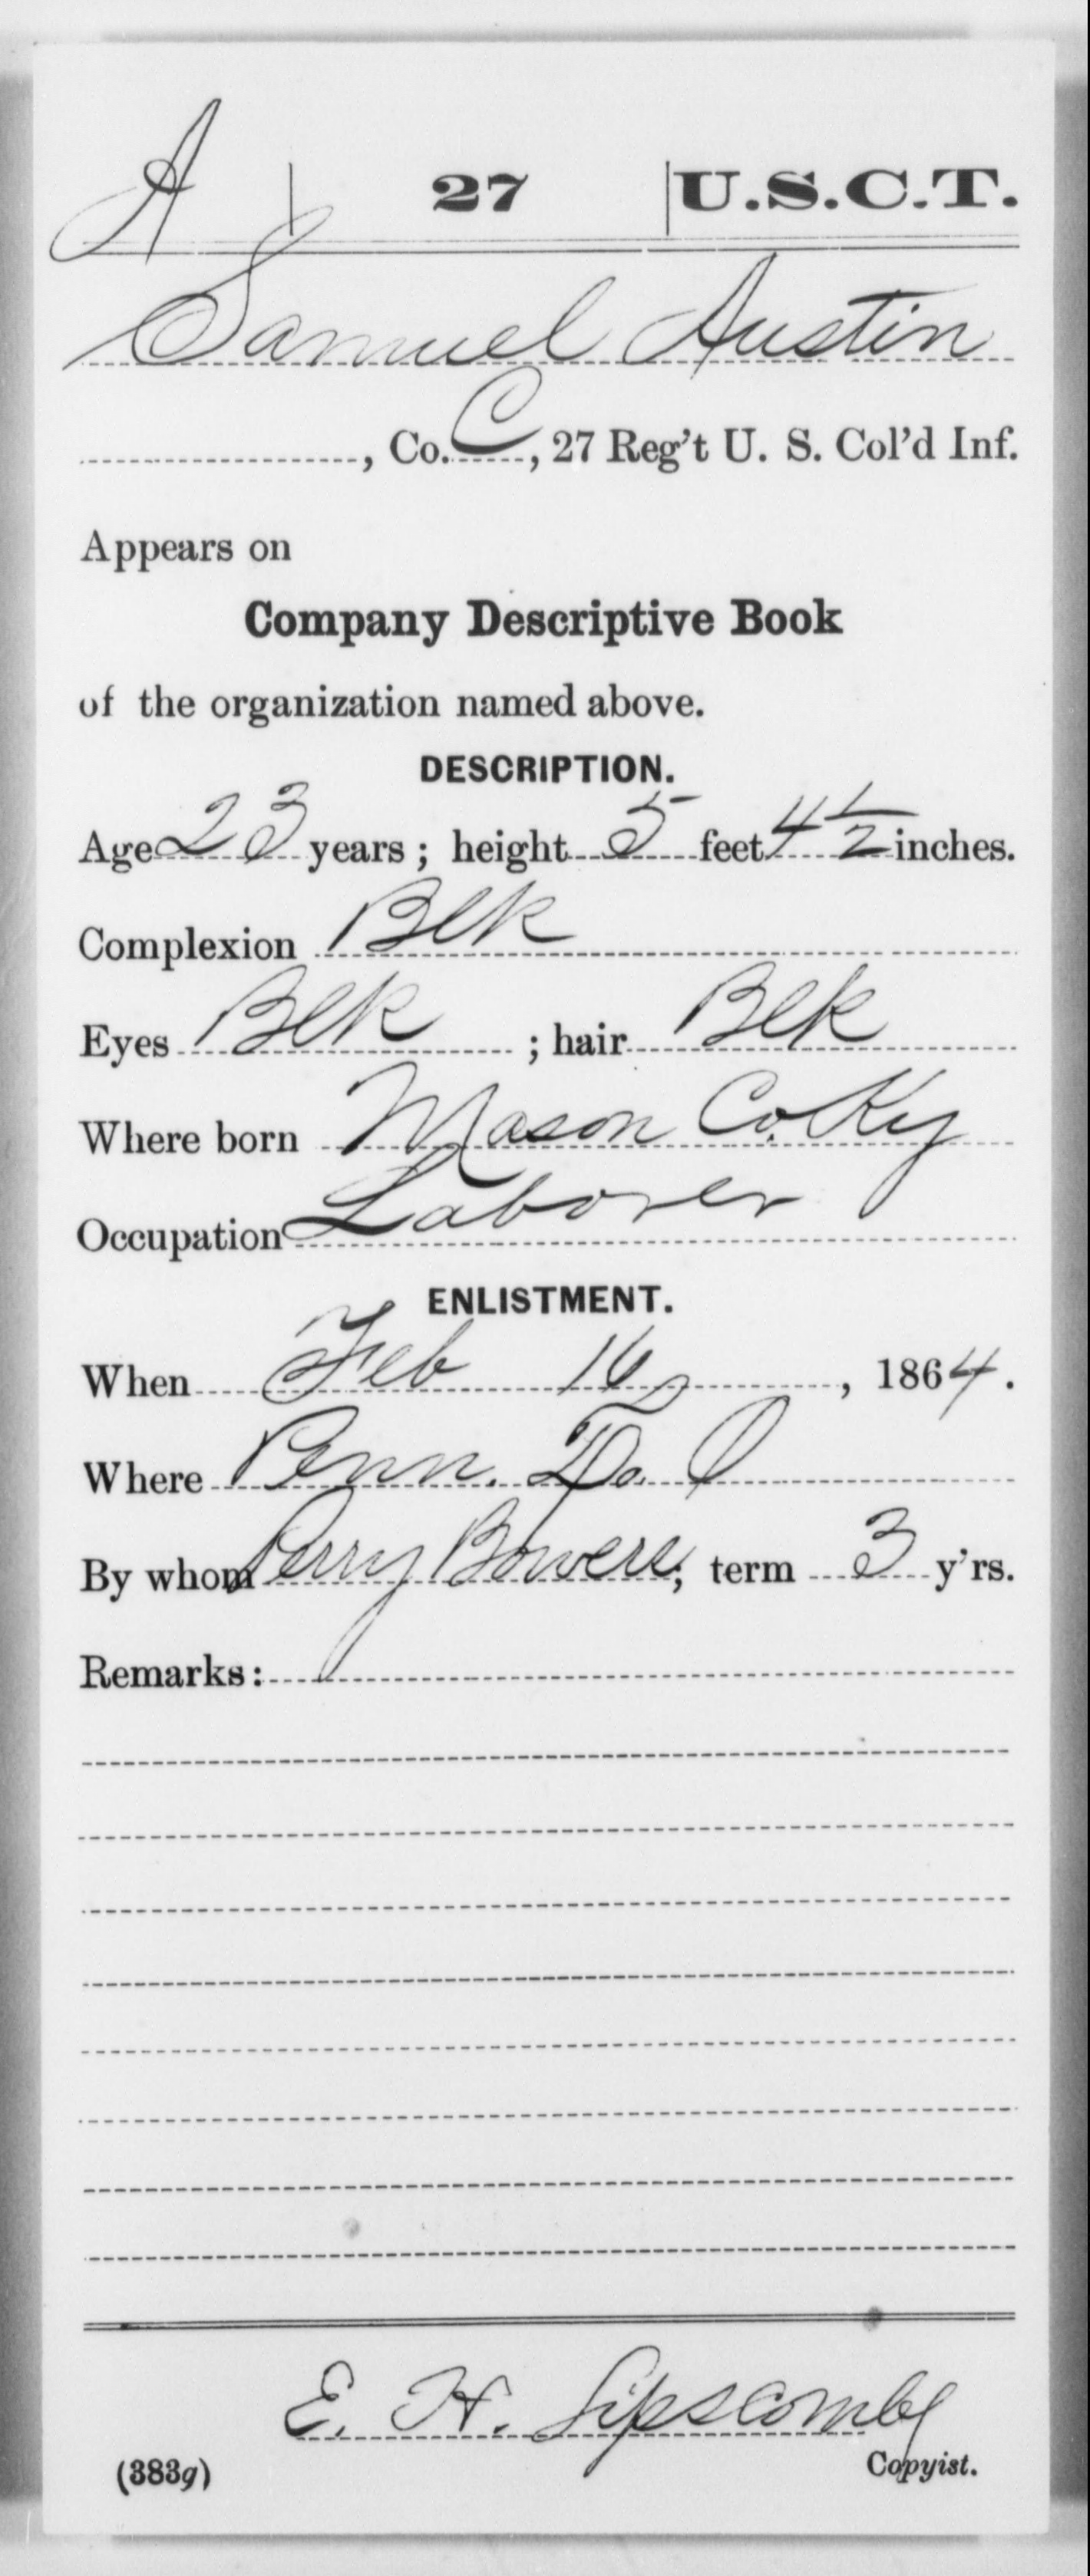 A | 27 | U.S.C.T.
Samuel Austin
, Co. C, 27 Reg't U. S. Col'd Inf.
Appears on
Company Descriptive Book
of the organization named above.
DESCRIPTION.
Age 23 years; height 5 feet 4 1/2 inches.
Complexion Blk
Eyes Blk ; hair Blk
Where born Mason Co. Ky
Occupation Laborer
ENLISTMENT.
When Feb 16, 1864.
Where Penn. O
By whom Perry Bowers; term 3 y'rs.
Remarks:
E. H. Lipscomb
(383g) Copyist.